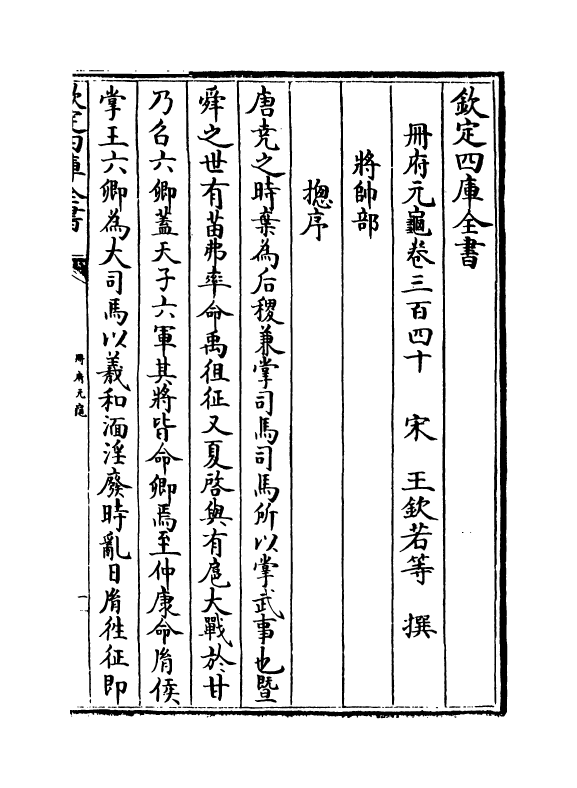 欽定四庫全書
冊府元龜卷三百四十　宋　王欽若等　撰
將帥部
揔序
唐堯之時棄為后稷兼掌司馬司馬所以掌武事也暨
舜之世有苗弗率命禹徂征又夏啓與有扈大戰於甘
乃召六卿葢天子六軍其將皆命卿焉至仲康命胤侯
掌王六卿為大司馬以羲和湎淫廢時亂日胤徃征即
欽定四庫全書
冊府元龜
一